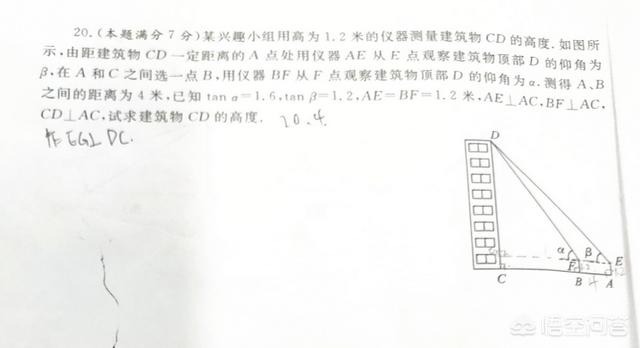 20.(本题满分7分)某兴趣小组用高为1.2米的仪器测量建筑物CD的高度.如图所
示,由距建筑物CD一定距离的A点处用仪器AE从E点观察建筑物顶部D的仰角为
β,在A和C之间选一点B,用仪器BF从F点观察建筑物顶部D的仰角为α.测得A、B
之间的距离为4米,已知tan α=1.6,tan β=1.2,AE=BF=1.2米,AE⊥AC,BF⊥AC,
CD⊥AC,试求建筑物CD的高度. 20.4
作EG⊥DC.
D
α β E
F
C B 4 A
悟空问答